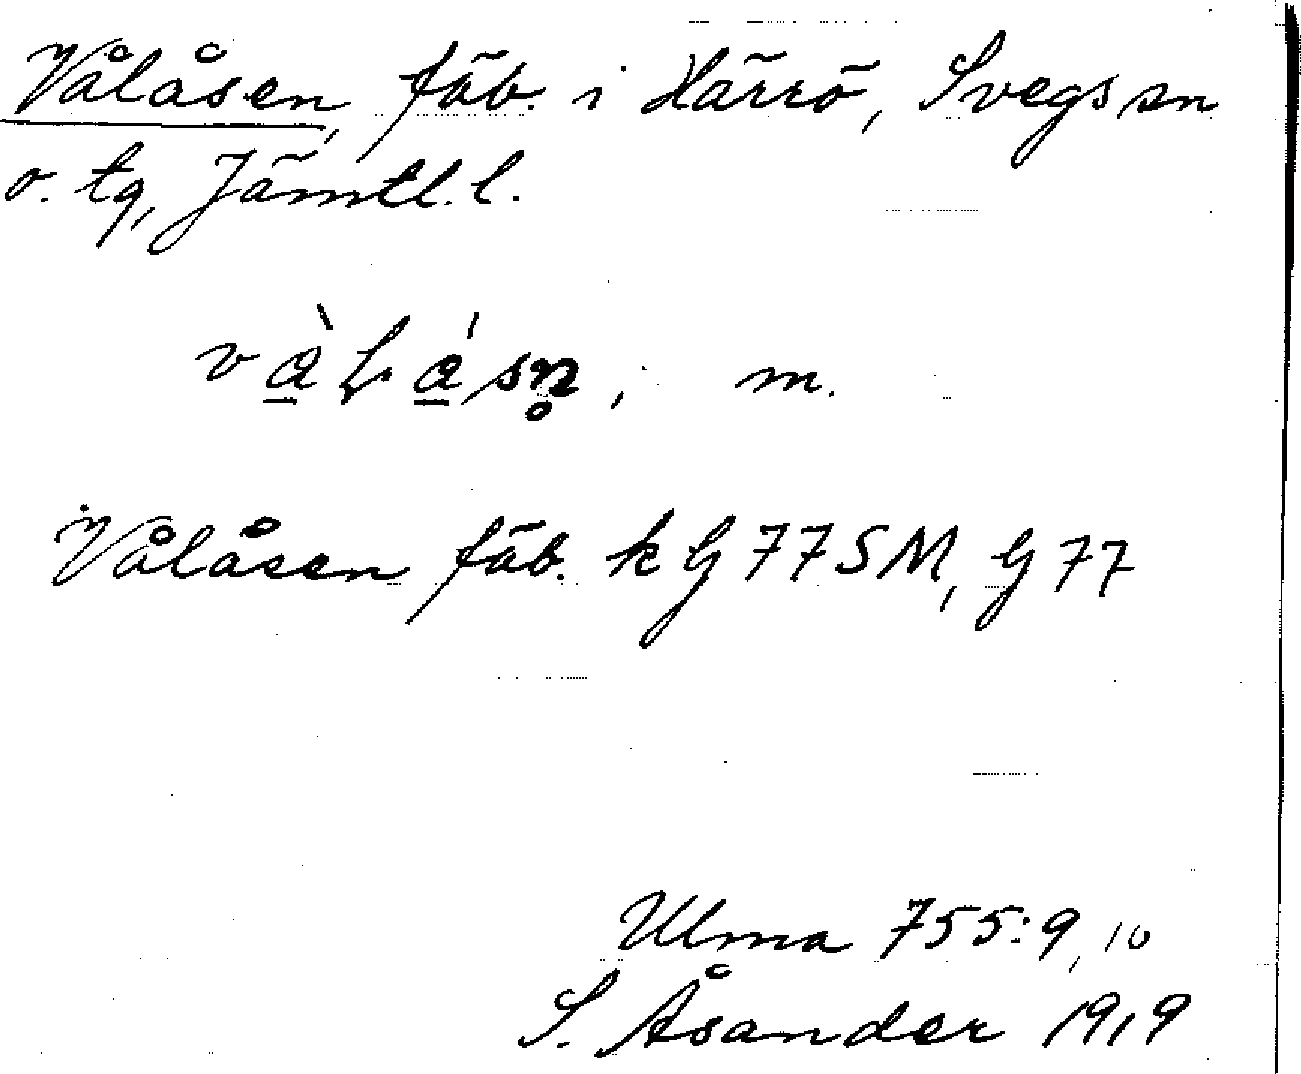 Vålåsen, fäb. i Härrö, Svegs sn
o. tg, Jämtl. l.
vàLásn̥, m.
Vålåsen fäb. k G77SM, G77
Ulma 755:9, 10
S. Åsander 1919